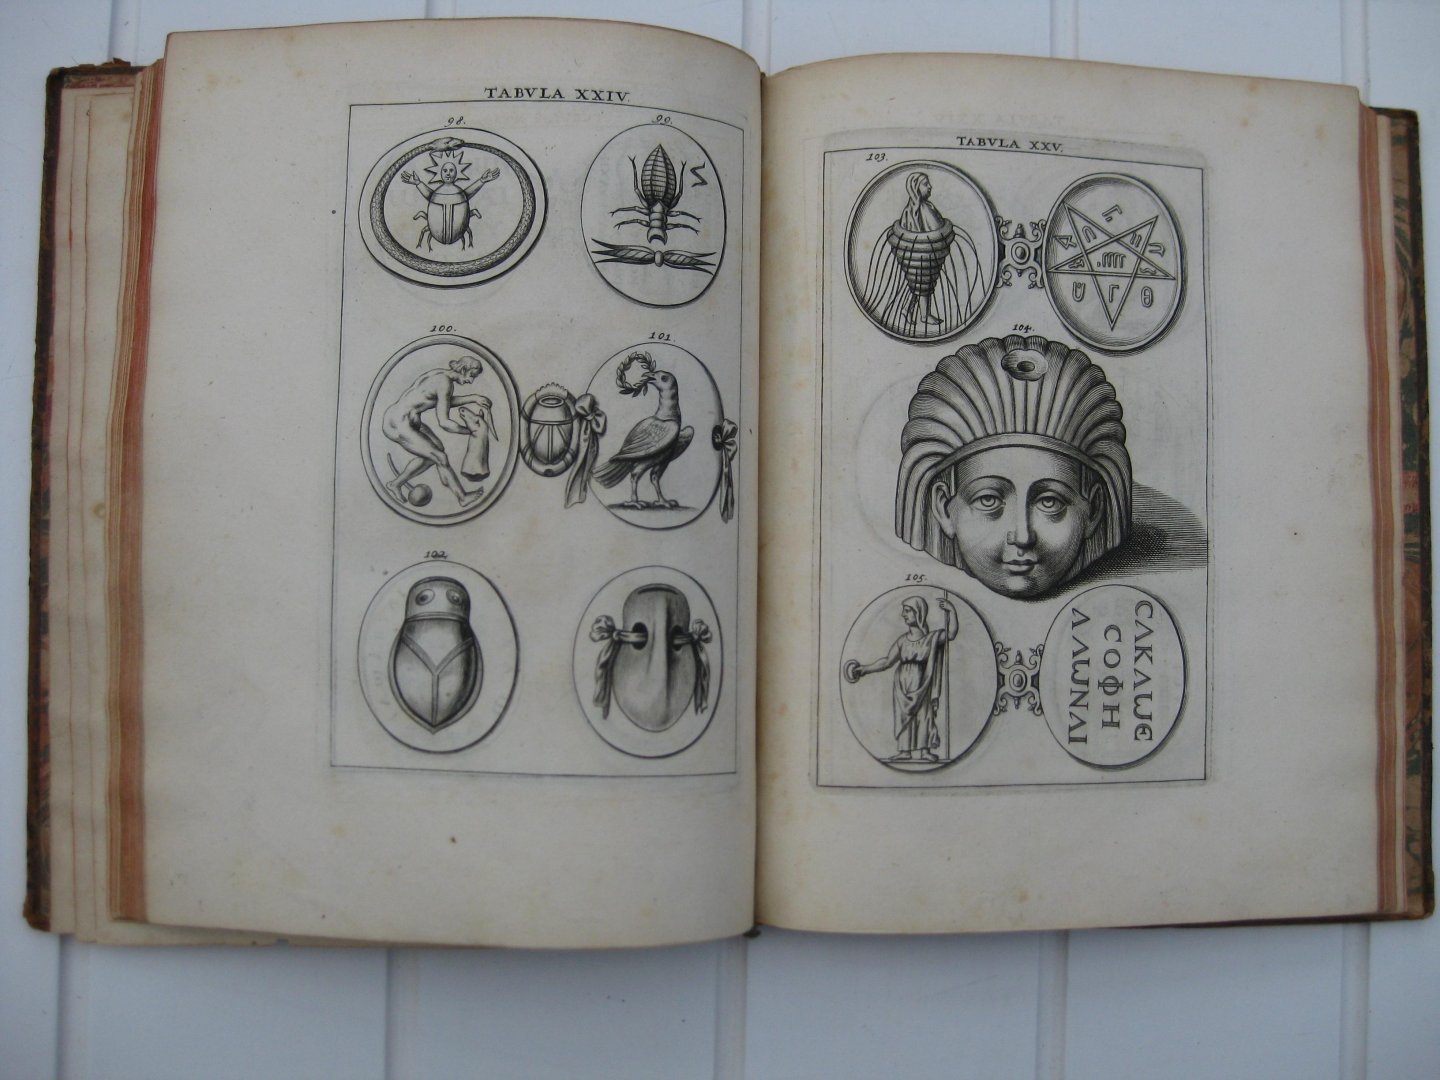 TABVLA XXIV.
98.
99.
100.
101.
102.
TABVLA XXV.
103.
104.
105.
CΛΚΛѠЄ
CΟΦΗ
ΛΛѠΝΛΙ